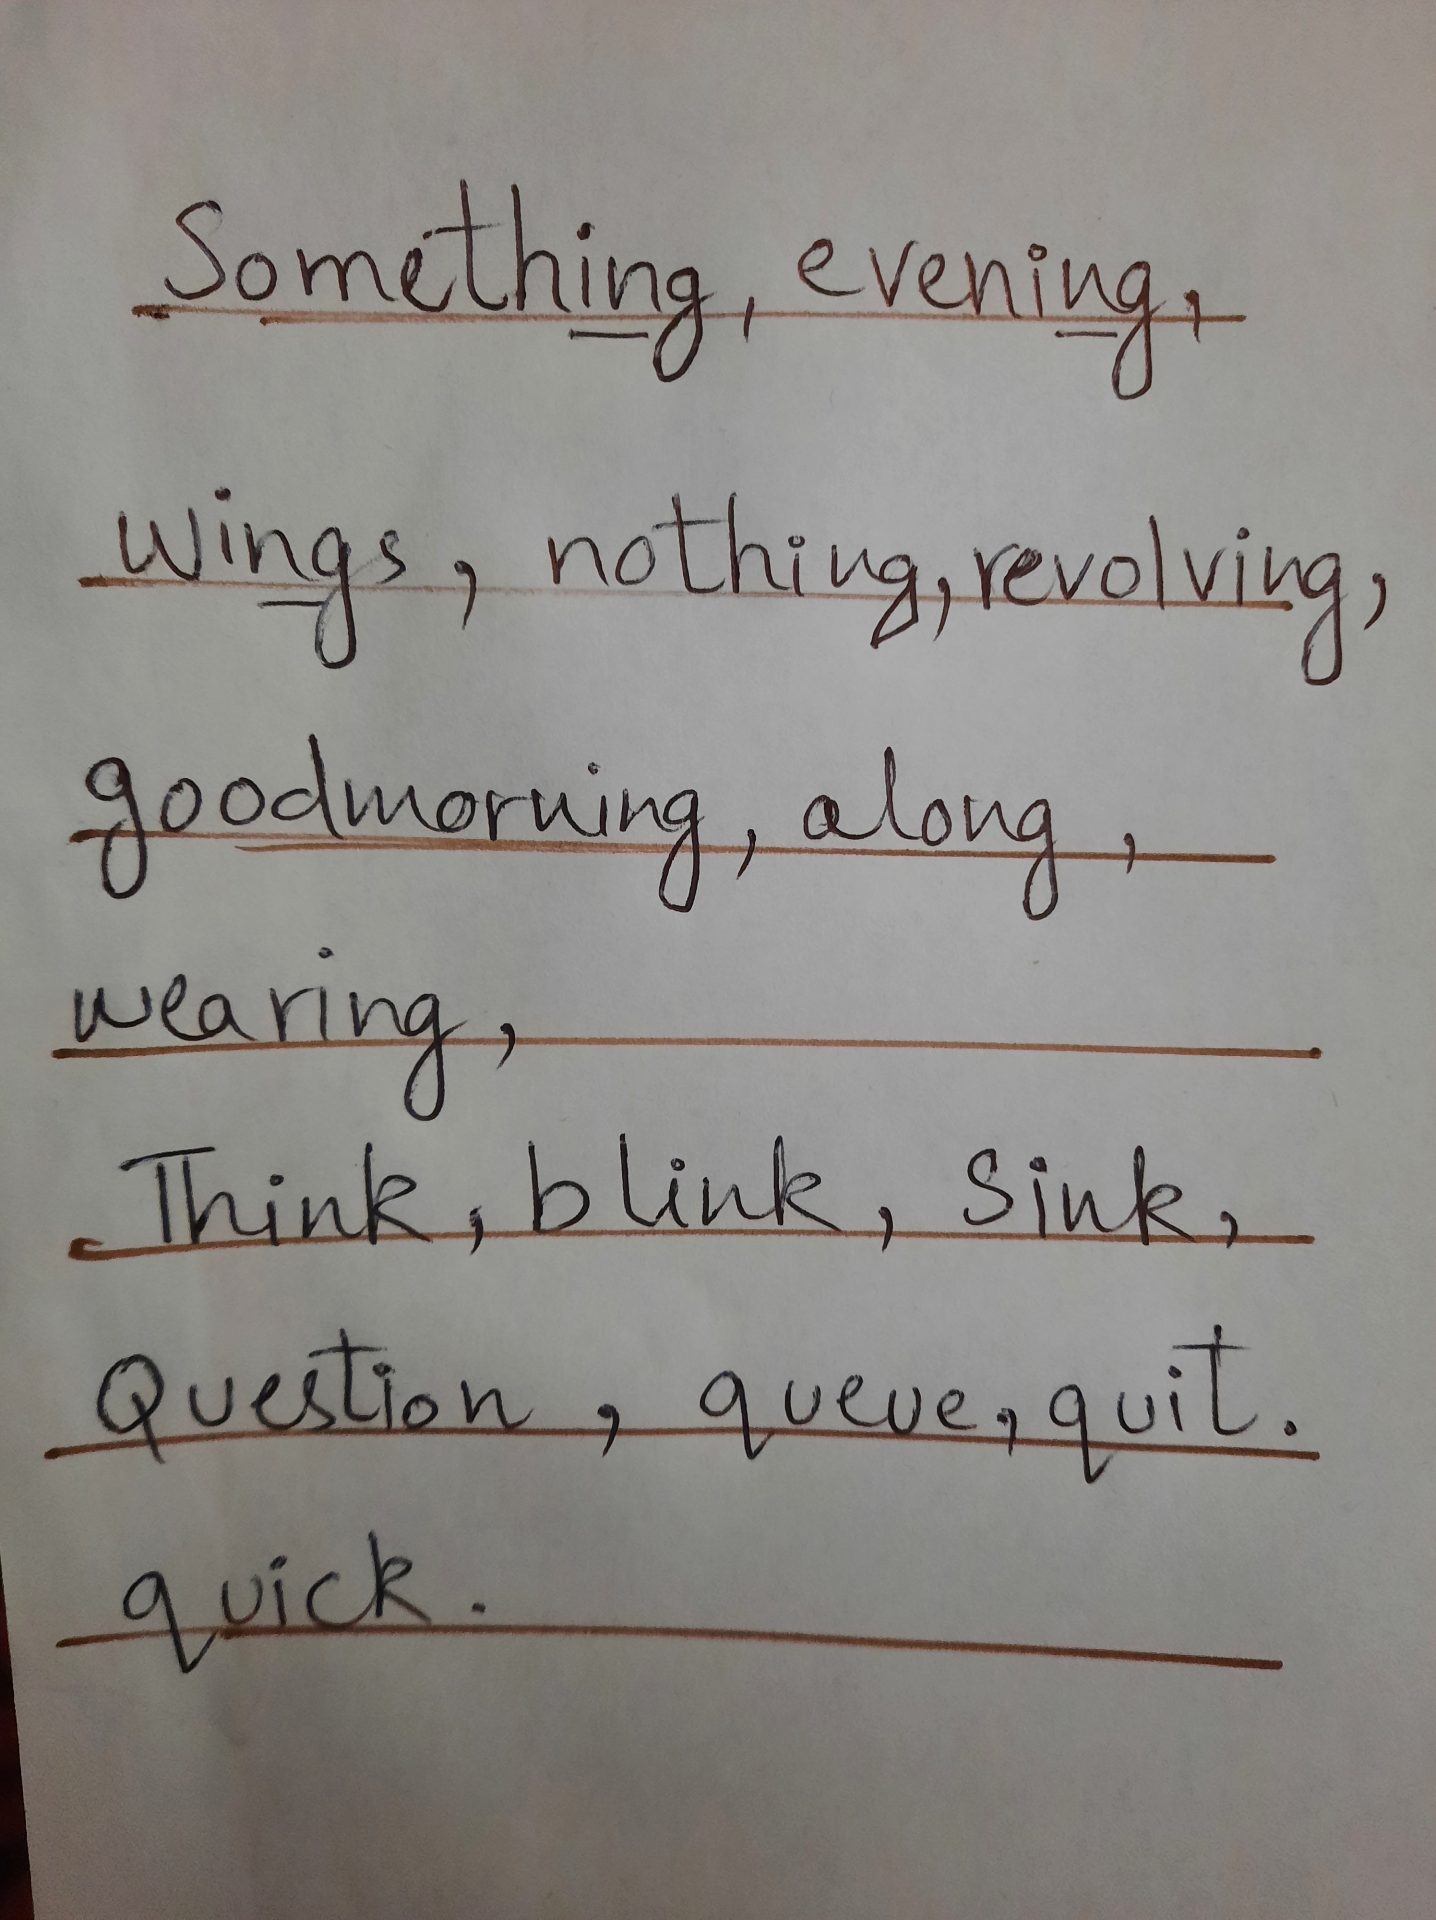 Something, evening,
wings, nothing, revolving,
goodmorning, along,
wearing,
Think, blink, Sink,
Question, queue, quit.
quick.